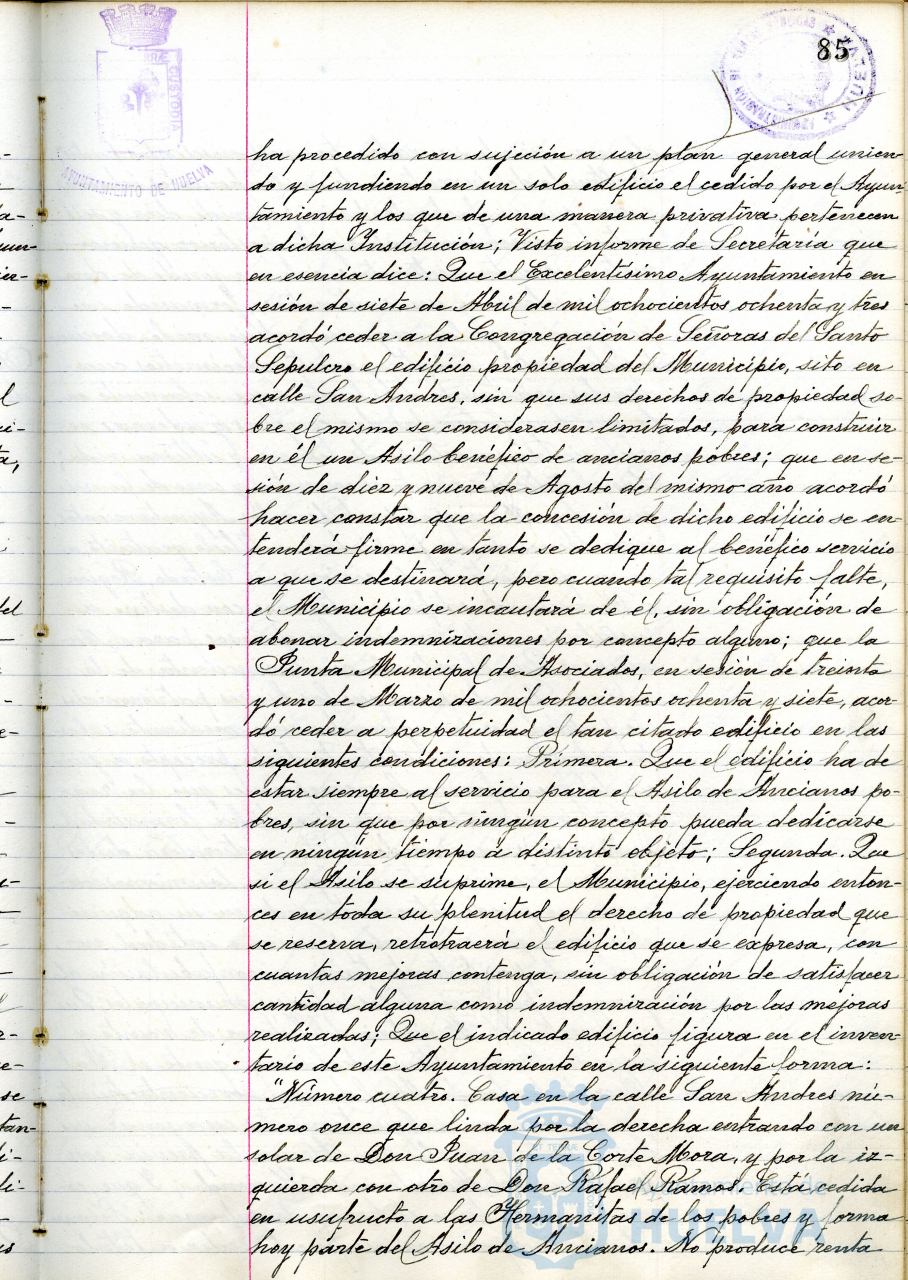 85
CUSTODIA
AYUNTAMIENTO DE HUELVA
HUELVA
ha procedido con sujeción a un plan general unien-
do y fundiendo en un solo edificio el cedido por el Ayun-
tamiento y los que de una manera privativa pertenecen
a dicha Institución; Visto informe de Secretaría que
en esencia dice: Que el Excelentísimo Ayuntamiento en
sesión de siete de Abril de mil ochocientos ochenta y tres
acordó ceder a la Congregación de Señoras del Santo
Sepulcro el edificio propiedad del Municipio, sito en
calle San Andres, sin que sus derechos de propiedad so-
bre el mismo se considerasen limitados, para construir
en él un Asilo benéfico de ancianos pobres; que en se-
sión de diez y nueve de Agosto del mismo año acordó
hacer constar que la concesión de dicho edificio se en-
tenderá firme en tanto se dedique al benéfico servicio
a que se destinará, pero cuando tal requisito falte,
el Municipio se incautará de él, sin obligación de
abonar indemnizaciones por concepto alguno; que la
Junta Municipal de Asociados, en sesión de treinta
y uno de Marzo de mil ochocientos ochenta y siete, acor-
dó ceder a perpetuidad el tan citado edificio en las
siguientes condiciones: Primera. Que el edificio ha de
estar siempre al servicio para el Asilo de Ancianos po-
bres, sin que por ningún concepto pueda dedicarse
en ningún tiempo a distinto objeto; Segunda. Que
si el Asilo se suprime, el Municipio, ejerciendo enton-
ces en toda su plenitud el derecho de propiedad que
se reserva, retrotraerá el edificio que se expresa, con
cuantas mejoras contenga, sin obligación de satisfacer
cantidad alguna como indemnización por las mejoras
realizadas; Que el indicado edificio figura en el inven-
tario de este Ayuntamiento en la siguiente forma:
"Número cuatro. Casa en la calle San Andres nú-
mero once que linda por la derecha entrando con un
solar de Don Juan de la Corte Mora, y por la iz-
quierda con otro de Don Rafael Ramos. Está cedida
en usufructo a las Hermanitas de los pobres y forma
hoy parte del Asilo de Ancianos. No produce renta
HUELVA